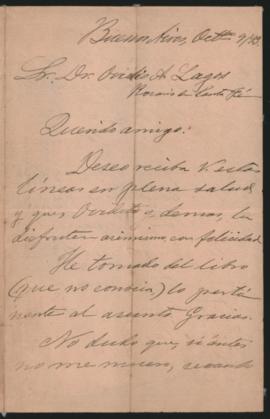 Buenos Aires, Octe 9/13.
Sr. Dr. Ovidio A. Lagos
Rosario de Santa Fé
Querido amigo:
Deseo reciba V. estas
líneas en plena salud
y que Ovidito y demas, la
disfruten asimismo con felicidad.
He tomado del libro
(que no conocia) lo perti-
nente al asunto. Gracias.
No dudo que, si antes
no me muero, cuando